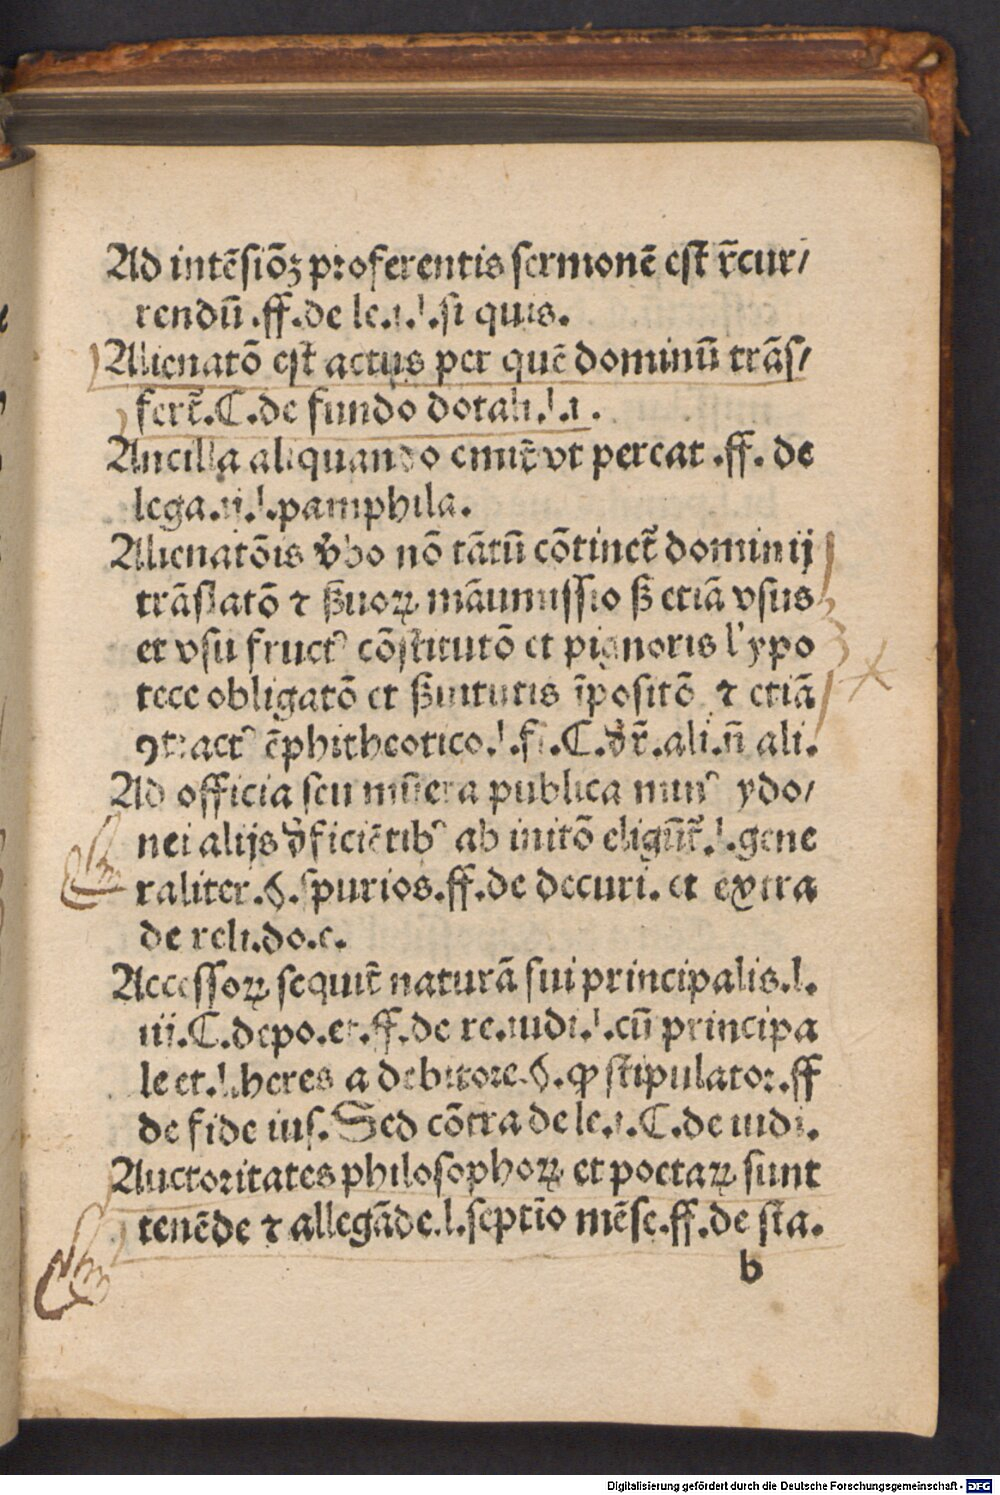 Ad intẽsiõꝫ proferentis sermonẽ est r̃cur/
rendũ .ff.de le.i.l.si quis.
Alienatõ est actus per quẽ dominũ trãs/
fert̃.C.de fundo dotali.l.i.
Ancilla aliquando emit̃ vt pereat .ff. de
lega.ij.l.pamphila.
Alienatõis v̾bo nõ tãtũ cõtinet̃ dominij
trãslatõ ⁊ ß̾uoꝝ mãumissio ß etiã vsus
et vsu fructꝰ cõstitutõ et pignoris hypo
tece obligatõ et ß̾uitutis ĩpositõ ⁊ etiã
ꝯtractꝰ ẽphitheotico.l.fi.C.d̾ r̃.ali.ñ ali.
Ad officia seu mũera publica minꝰ ydo/
nei alijs d̾ficiẽtibꝰ ab initõ eligũt̃.l.gene
raliter.§.spurios.ff.de decuri. et extra
de reli.do.c.
Accessoꝝ sequit̃ naturã sui principalis.l.
iij.C.depo.et.ff.de re.iudi.l.cũ principa
le et.l.heres a debitore.§.ꝙ stipulator.ff
de fide ius. Sed cõtra de le.i.C.de iudi.
Auctoritates philosophoꝝ et poetaꝝ sunt
tenẽde ⁊ allegãde.l.septĩo mẽse.ff.de sta.
b
Digitalisierung gefördert durch die Deutsche Forschungsgemeinschaft - DFG